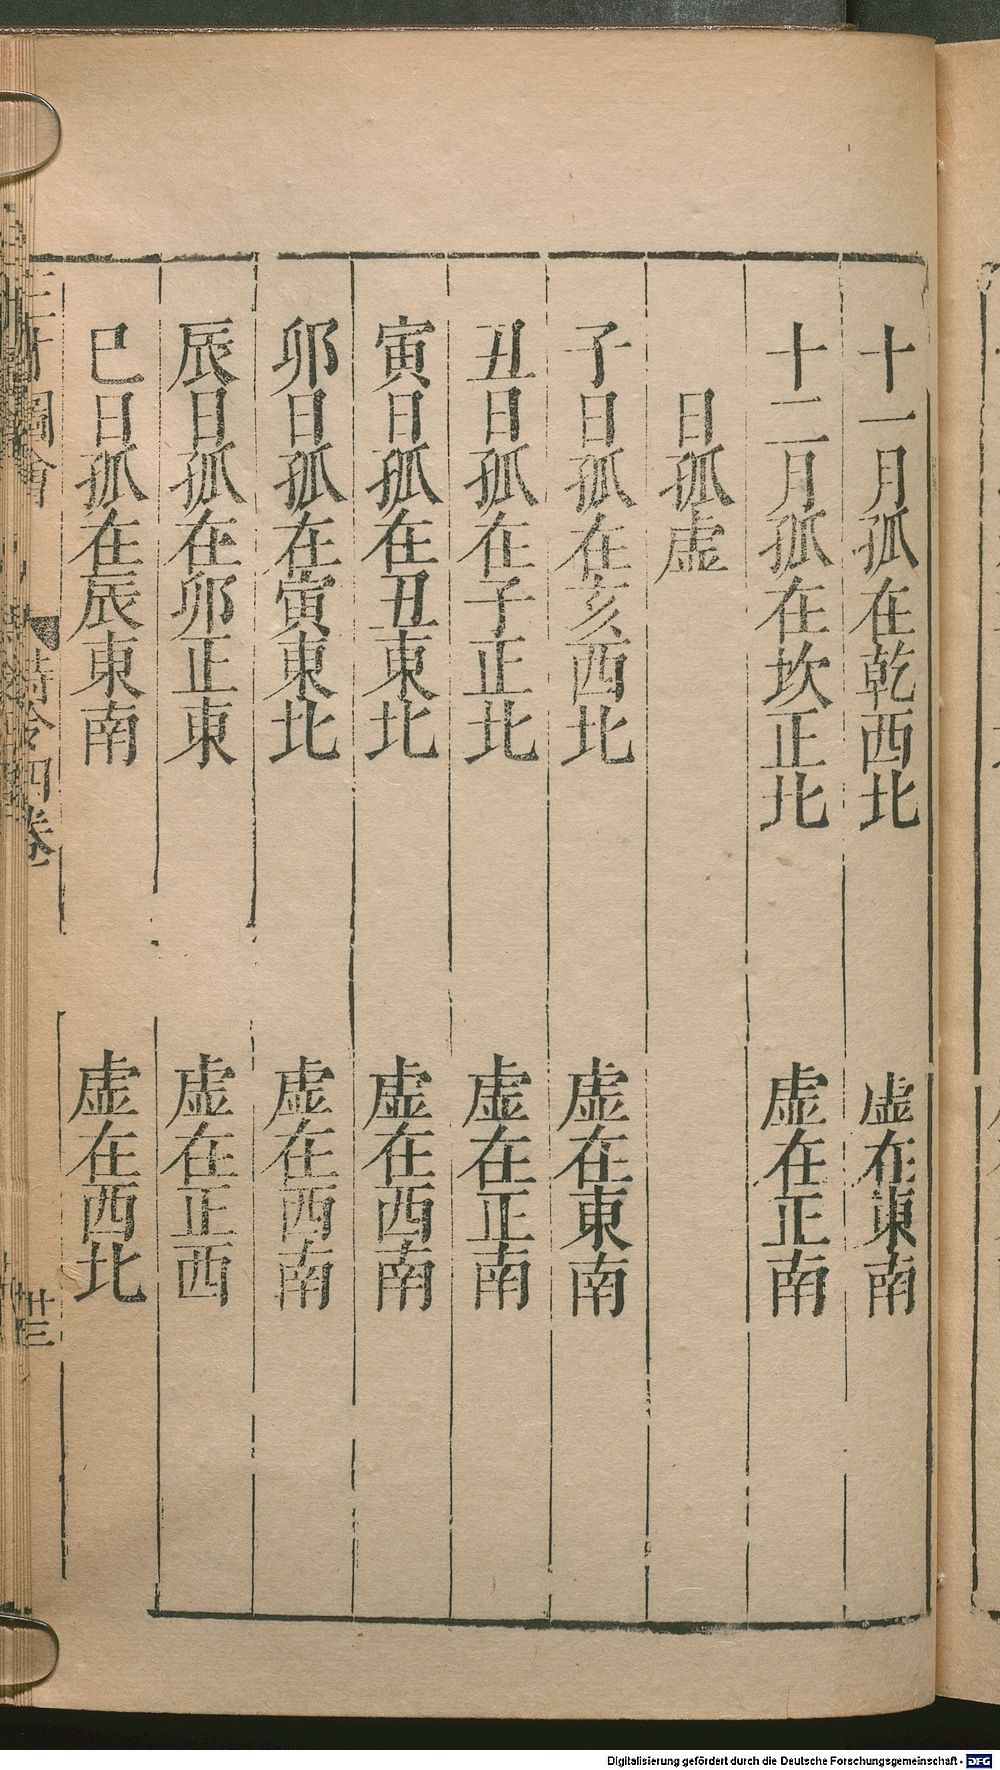 十一月孤在乾西北　虛在東南
十二月孤在坎正北　虛在正南
日孤虛
子日孤在亥西北　虛在東南
丑日孤在子正北　虛在正南
寅日孤在丑東北　虛在西南
卯日孤在寅東北　虛在西南
辰日孤在卯正東　虛在正西
巳日孤在辰東南　虛在西北
三才圖會　時令四卷　卅三
Digitalisierung gefördert durch die Deutsche Forschungsgemeinschaft - DFG